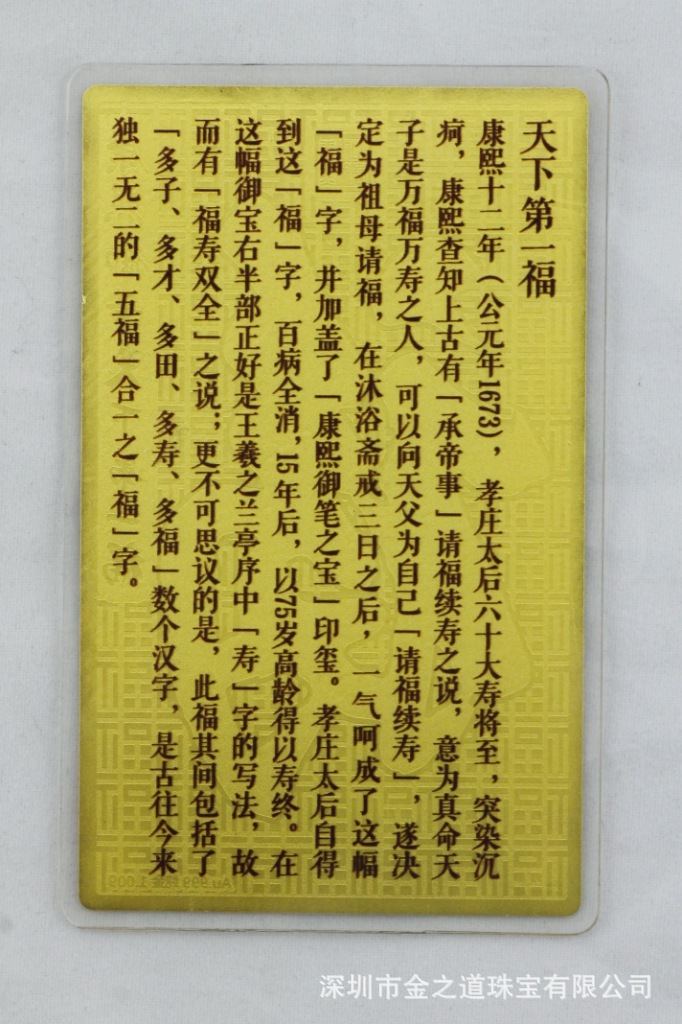 天下第一福
康熙十二年（公元年1673），孝庄太后六十大寿将至，突染沉
疴，康熙查知上古有「承帝事」请福续寿之说，意为真命天
子是万福万寿之人，可以向天父为自己「请福续寿」，遂决
定为祖母请福，在沐浴斋戒三日之后，一气呵成了这幅
「福」字，并加盖了「康熙御笔之宝」印玺。孝庄太后自得
到这「福」字，百病全消，15年后，以75岁高龄得以寿终。在
这幅御宝右半部正好是王羲之兰亭序中「寿」字的写法，故
而有「福寿双全」之说；更不可思议的是，此福其间包括了
「多子、多才、多田、多寿、多福」数个汉字，是古往今来
独一无二的「五福」合一之「福」字。
深圳市金之道珠宝有限公司